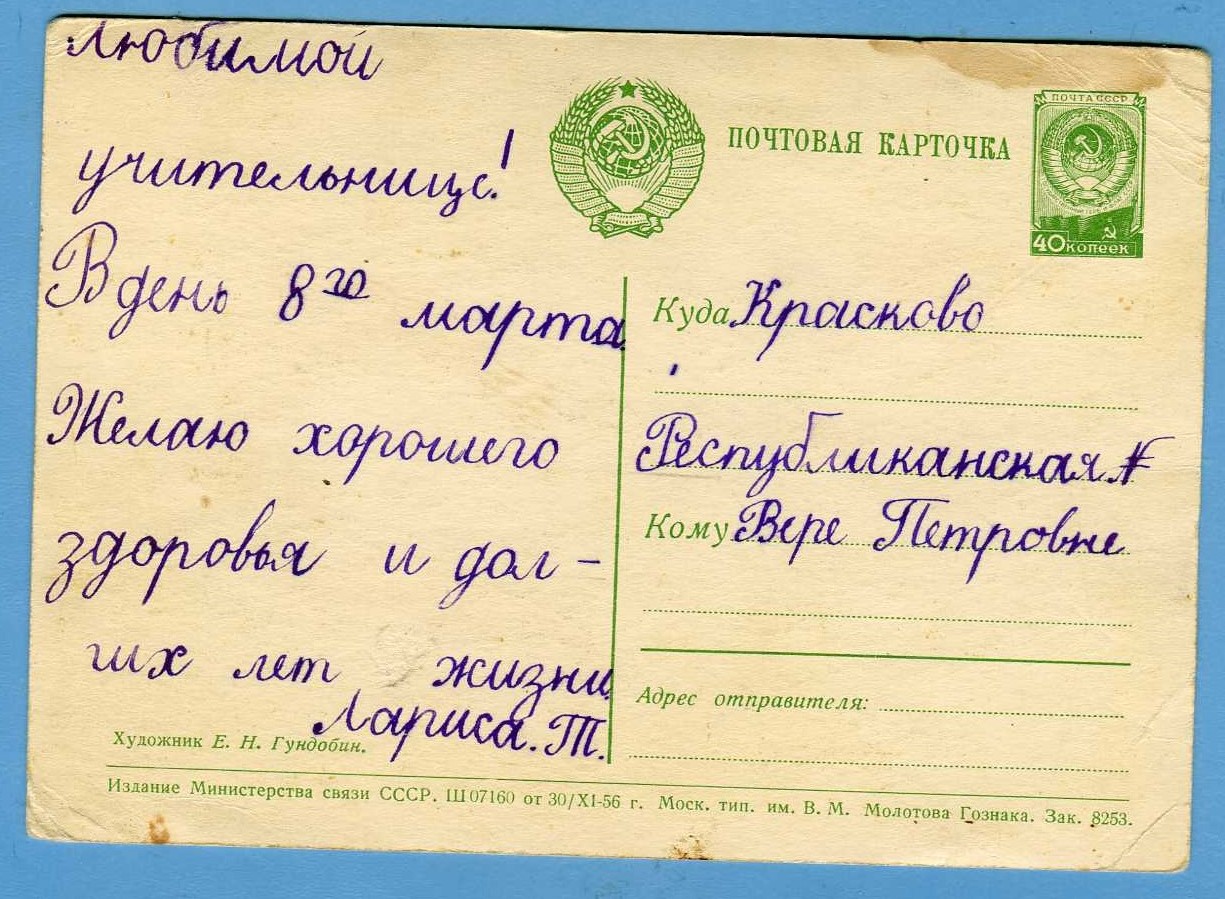 любимой
учительнице!
В день 8го марта.
Желаю хорошего
здоровья и дол-
гих лет жизни.
Лариса. Т.
Художник Е. Н. Гундобин.
ПОЧТОВАЯ КАРТОЧКА
ПОЧТА СССР
40 копеек
Куда Красково
Республиканская
Кому Вере Петровне
Адрес отправителя:
Издание Министерства связи СССР. Ш 07160 от 30/XI-56 г. Моск. тип. им. В. М. Молотова Гознака. Зак. 8253.